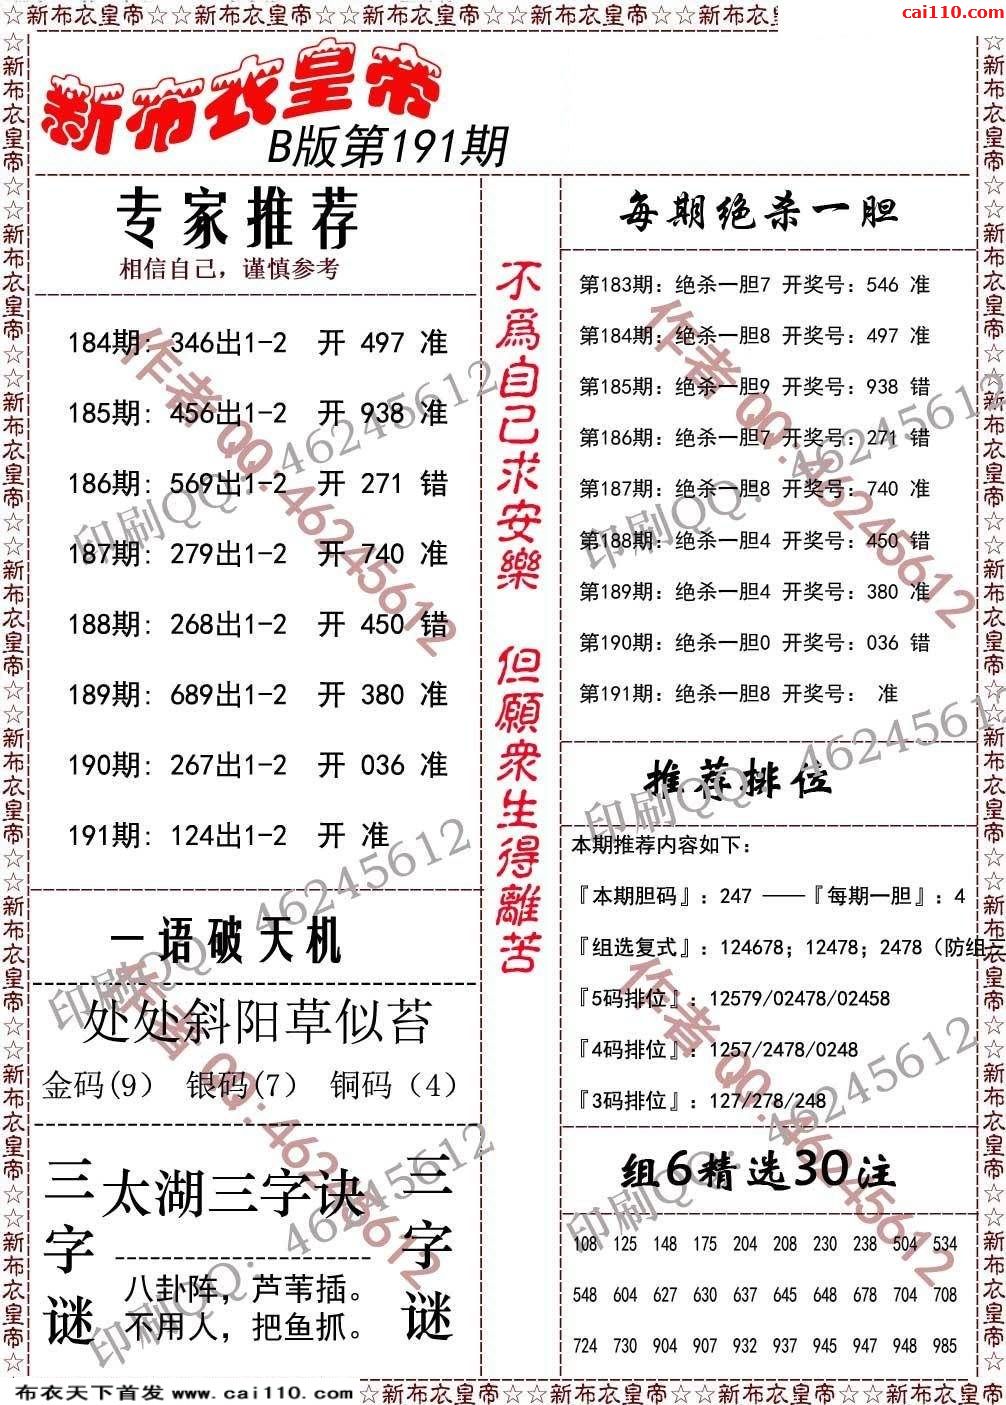 ☆新布衣皇帝☆☆新布衣皇帝☆☆新布衣皇帝☆☆新布衣皇帝☆☆新布衣皇帝☆☆新布衣皇帝
cai110.com
新布衣皇帝
B版第191期
专家推荐
相信自己，谨慎参考
184期: 346出1-2 开 497 准
185期: 456出1-2 开 938 准
186期: 569出1-2 开 271 错
187期: 279出1-2 开 740 准
188期: 268出1-2 开 450 错
189期: 689出1-2 开 380 准
190期: 267出1-2 开 036 准
191期: 124出1-2 开 准
一语破天机
处处斜阳草似苔
金码(9） 银码(7） 铜码（4）
三字谜
太湖三字诀
八卦阵，芦苇插。
不用人，把鱼抓。
三字谜
不爲自己求安樂 但願衆生得離苦
每期绝杀一胆
第183期: 绝杀一胆7 开奖号: 546 准
第184期: 绝杀一胆8 开奖号: 497 准
第185期: 绝杀一胆9 开奖号: 938 错
第186期: 绝杀一胆7 开奖号: 271 错
第187期: 绝杀一胆8 开奖号: 740 准
第188期: 绝杀一胆4 开奖号: 450 错
第189期: 绝杀一胆4 开奖号: 380 准
第190期: 绝杀一胆0 开奖号: 036 错
第191期: 绝杀一胆8 开奖号: 准
推荐排位
本期推荐内容如下:
『本期胆码』: 247 ——『每期一胆』: 4
『组选复式』: 124678; 12478; 2478（防组三
『5码排位』: 12579/02478/02458
『4码排位』: 1257/2478/0248
『3码排位』: 127/278/248
组6精选30注
108 125 148 175 204 208 230 238 504 534
548 604 627 630 637 645 648 678 704 708
724 730 904 907 932 937 945 947 948 985
作者 QQ: 46245612
印刷QQ: 46245612
布衣天下首发 www.cai110.com
☆新布衣皇帝☆☆新布衣皇帝☆☆新布衣皇帝☆☆新布衣皇帝☆